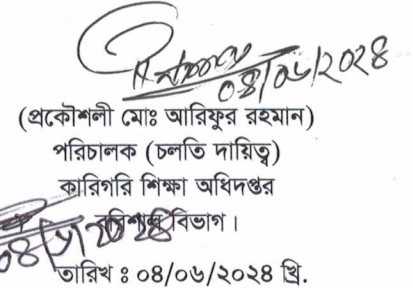 ০৪/০৬/২০২৪
(প্রকৌশলী মোঃ আরিফুর রহমান)
পরিচালক (চলতি দায়িত্ব)
কারিগরি শিক্ষা অধিদপ্তর
বরিশাল বিভাগ।
তারিখ ঃ ০৪/০৬/২০২৪ খ্রি.